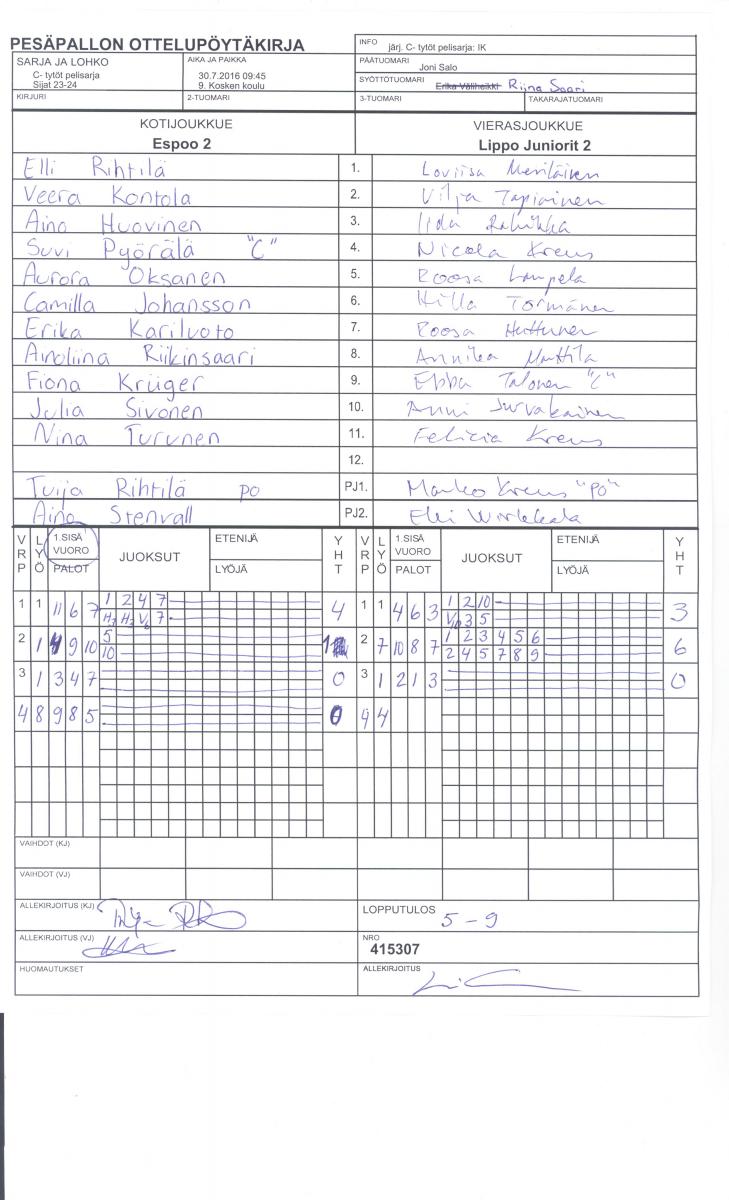 PESÄPALLON OTTELUPÖYTÄKIRJA
INFO järj. C- tytöt pelisarja: IK
SARJA JA LOHKO
C- tytöt pelisarja
Sijat 23-24
AIKA JA PAIKKA
30.7.2016 09:45
9. Kosken koulu
PÄÄTUOMARI Joni Salo
SYÖTTÖTUOMARI Erika Väliheikki Riina Saari
KIRJURI 2-TUOMARI 3-TUOMARI TAKARAJATUOMARI
KOTIJOUKKUE VIERASJOUKKUE
Espoo 2 Lippo Juniorit 2
Elli Rihtilä 1. Loviisa Meriläinen
Veera Kontola 2. Vilja Tapioinen
Aino Huovinen 3. Iida
Suvi Pyörälä "C" 4. Nicola Kreus
Aurora Oksanen 5. Roosa Lampela
Camilla Johansson 6. Hilla Törmänen
Erika Kariluoto 7. Roosa Huttunen
Ainoliina Riikinsaari 8. Annika Marttila
Fiona Krüger 9. Ebba Talonen "C"
Julia Sivonen 10. Anni Jurvakainen
Nina Turunen 11. Felicia Kreus
12.
Tuija Rihtilä po PJ1. Marko Kreus "po"
Aino Stenvall PJ2.
VRP LYÖ 1.SISÄ VUORO PALOT JUOKSUT ETENIJÄ LYÖJÄ YHT VRP LYÖ 1.SISÄ VUORO PALOT JUOKSUT ETENIJÄ LYÖJÄ YHT
1 1 11 6 7 1 2 4 7 4 1 1 4 6 3 1 2 10 3
7 3 5
2 1 9 10 5 1 2 7 10 8 7 1 2 3 4 5 6 6
10 2 4 5 7 8 9
3 1 3 4 7 0 3 1 2 1 3 0
4 8 9 8 5 0 4 4
VAIHDOT (KJ)
VAIHDOT (VJ)
ALLEKIRJOITUS (KJ) LOPPUTULOS 5 - 9
ALLEKIRJOITUS (VJ) NRO
415307
HUOMAUTUKSET ALLEKIRJOITUS